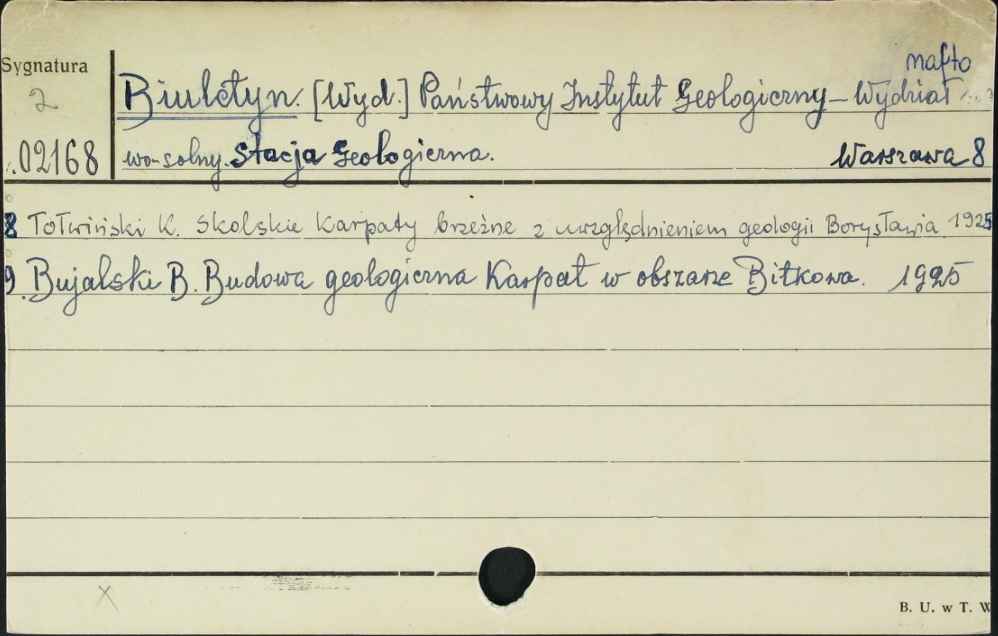 nafto
Sygnatura
2
Biuletyn. [Wyd.] Państwowy Instytut Geologiczny - Wydział
02168
wo-solny. Stacja Geologiczna. Warszawa 8
8 Tołwiński K. Skolskie Karpaty brzeżne z uwzględnieniem geologii Borysławia 1925
9. Bujalski B. Budowa geologiczna Karpat w obszarze Bitkowa. 1925
X
B. U. w T. W